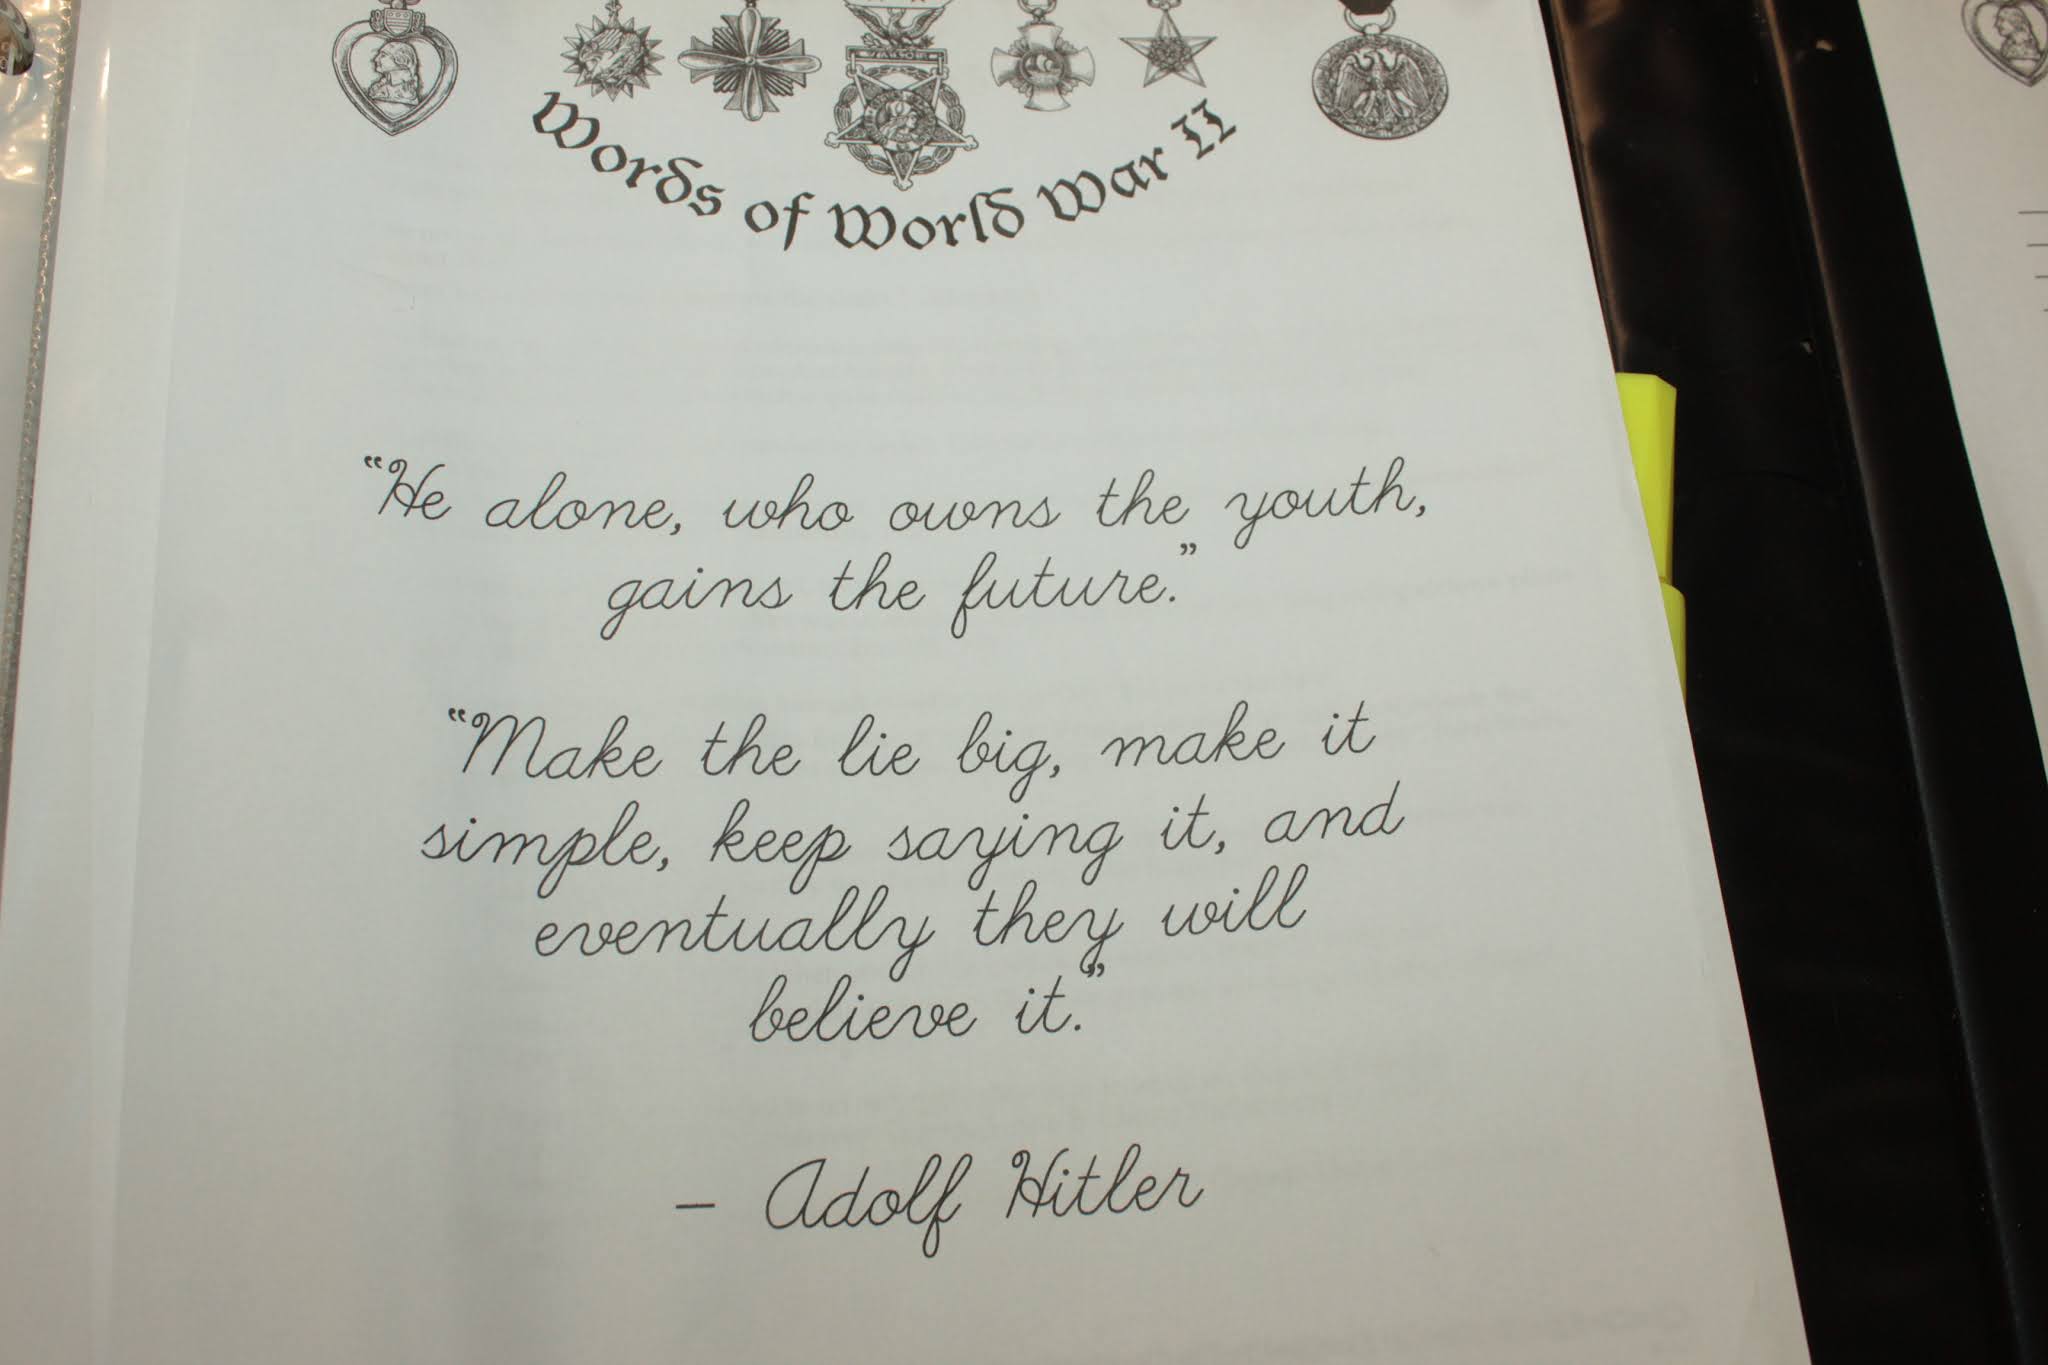 Words of World War II
"He alone, who owns the youth,
gains the future."
"Make the lie big, make it
simple, keep saying it, and
eventually they will
believe it."
- Adolf Hitler